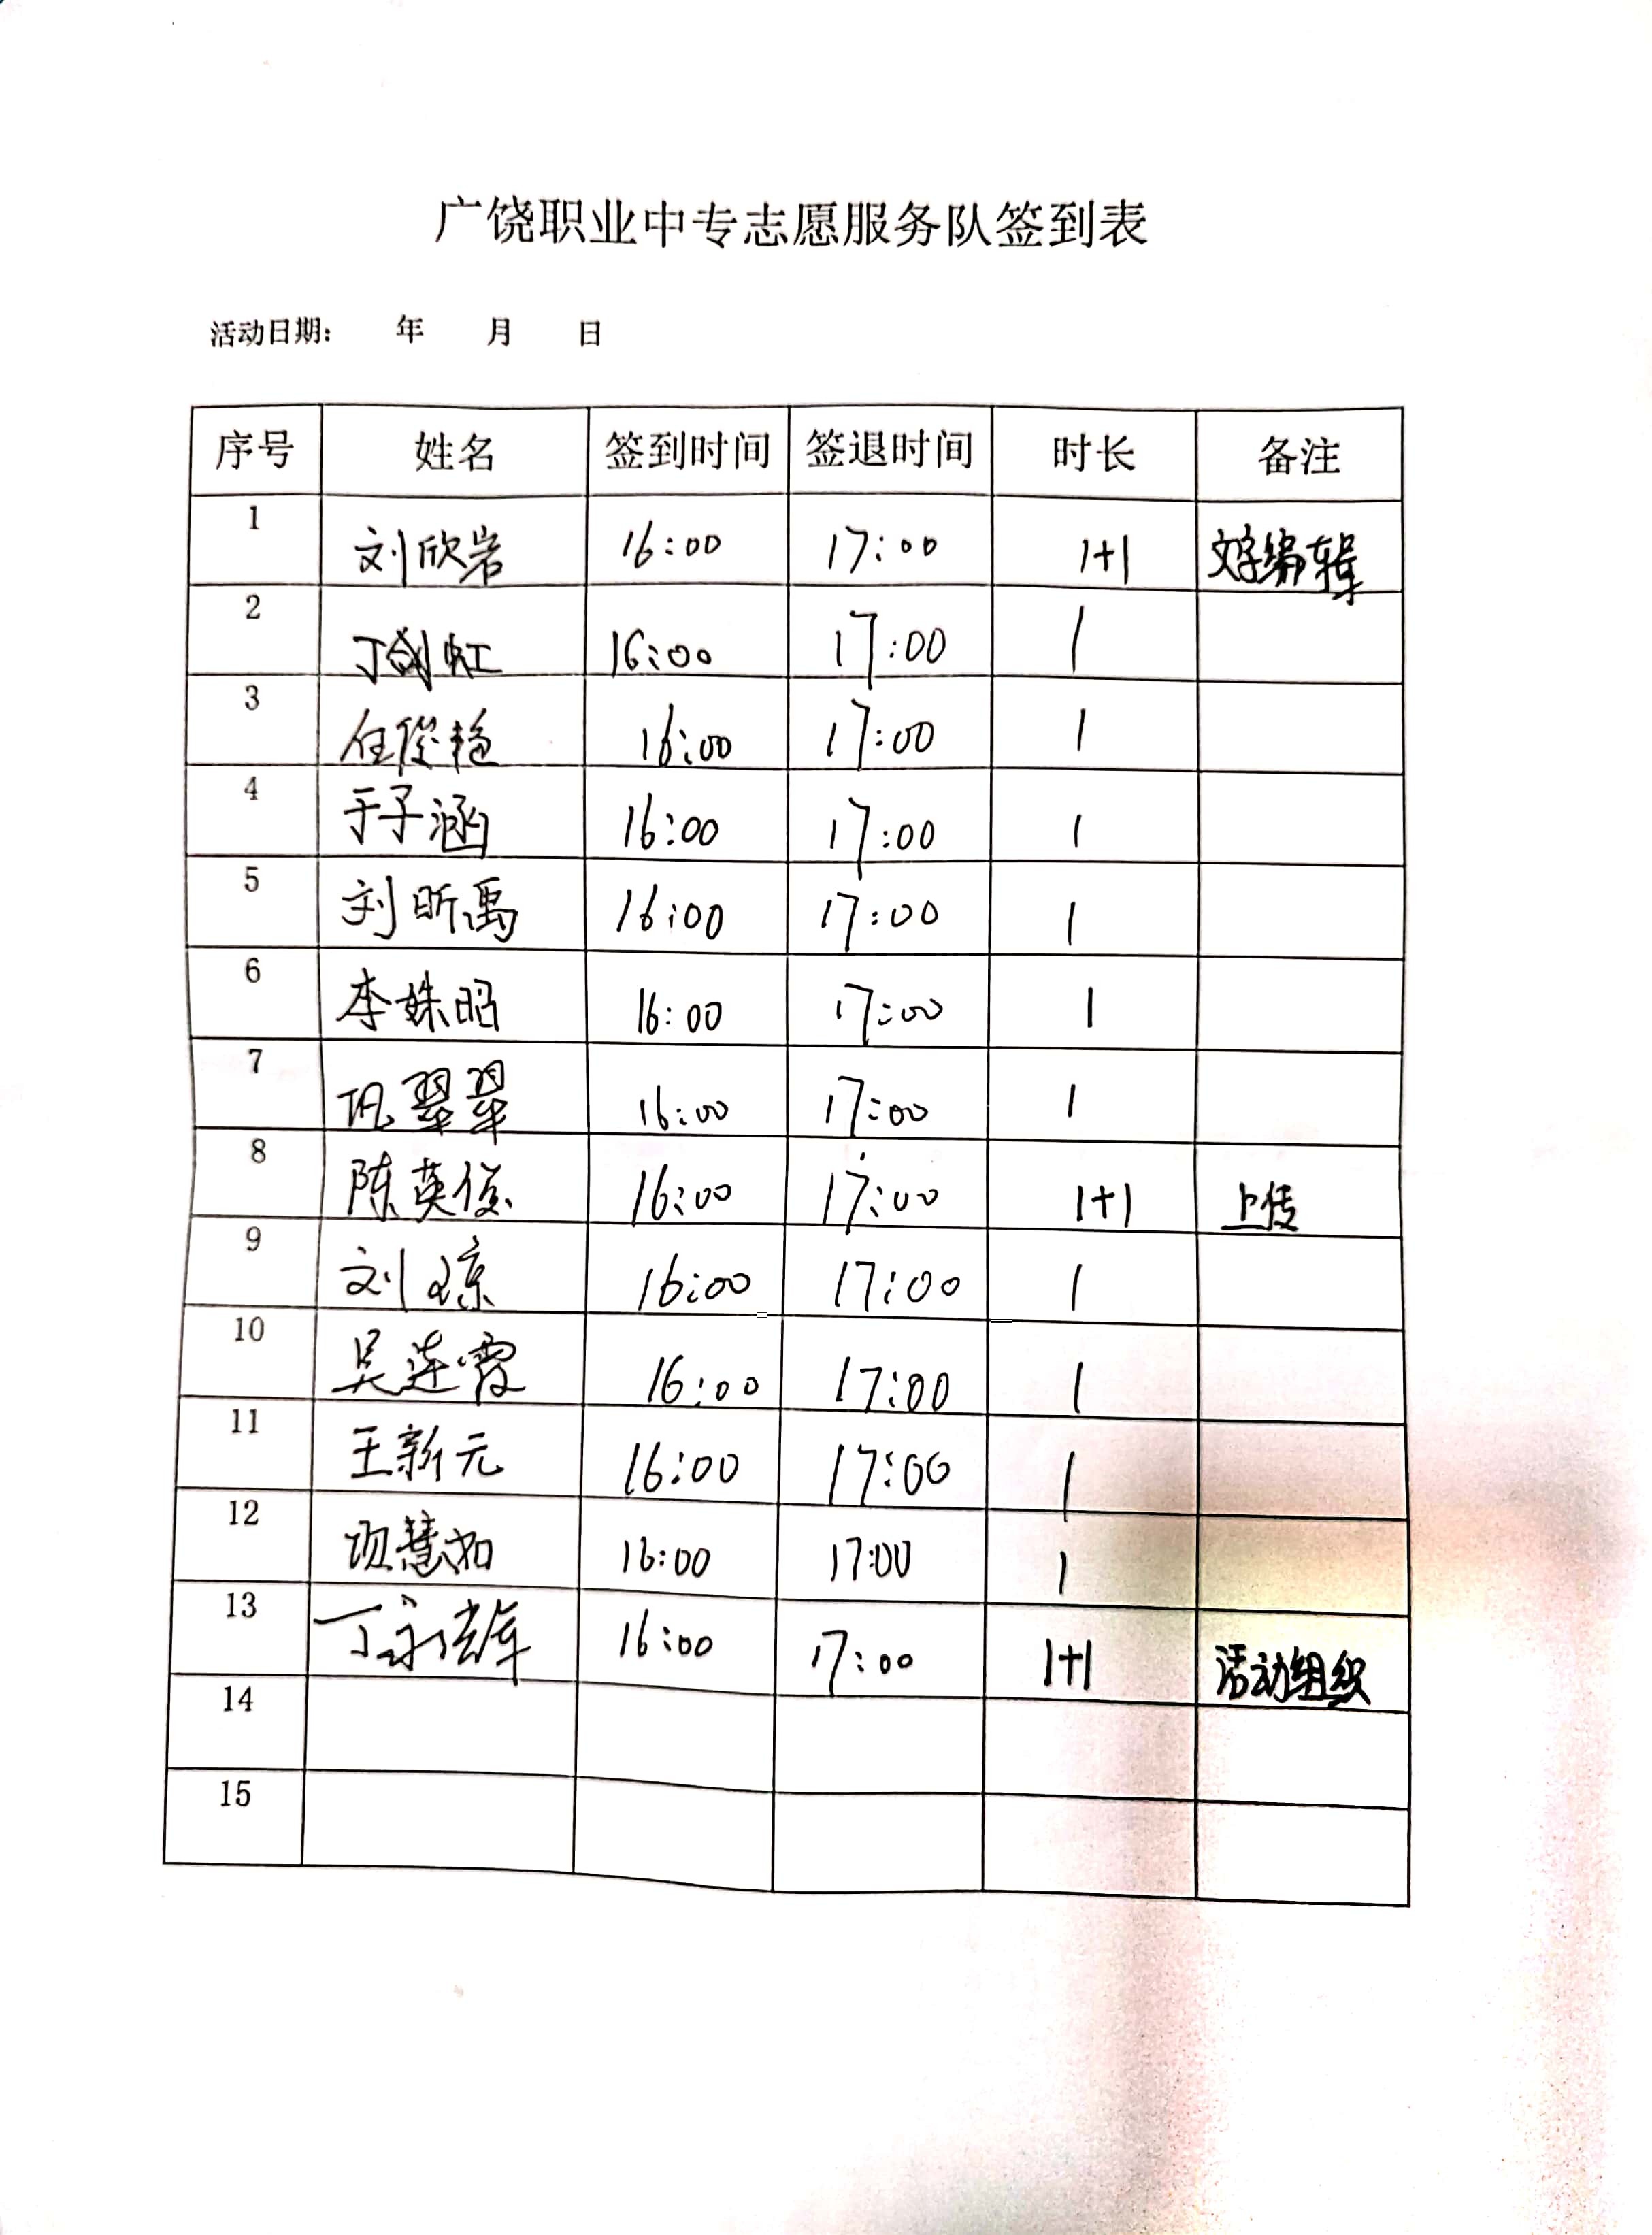 广饶职业中专志愿服务队签到表
活动日期: 年 月 日
序号 姓名 签到时间 签退时间 时长 备注
1 刘欣岩 16:00 17:00 1+1 文字编辑
2 丁剑虹 16:00 17:00 1
3 任俊艳 16:00 17:00 1
4 于子涵 16:00 17:00 1
5 刘昕禹 16:00 17:00 1
6 李姝昭 16:00 17:00 1
7 巩翠翠 16:00 17:00 1
8 陈英俊 16:00 17:00 1+1 上传
9 刘琼 16:00 17:00 1
10 吴莲霞 16:00 17:00 1
11 王新元 16:00 17:00 1
12 慧如 16:00 17:00 1
13 丁永 16:00 17:00 1+1 活动组织
14
15